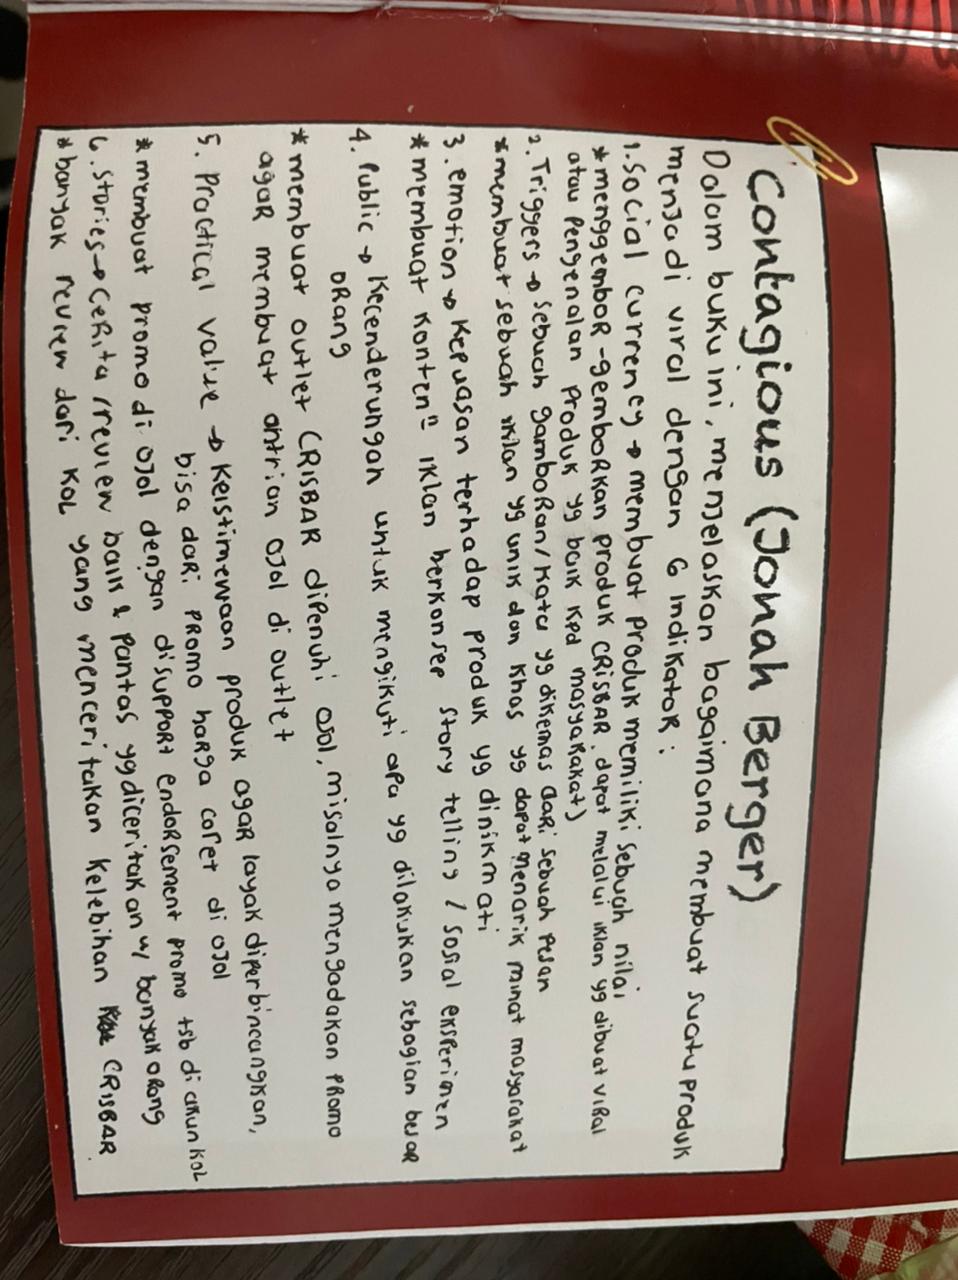 Contagious (Jonah Berger)
Dalam buku ini, menjelaskan bagaimana membuat suatu produk
menjadi viral dengan 6 indikator :
1. Social currency → membuat produk memiliki sebuah nilai
* menggembor-gemborkan produk CRISBAR. dapat melalui iklan yg dibuat viral
atau pengenalan produk yg baik kpd masyarakat)
2. Triggers → sebuah gambaran/kata yg dikemas dari sebuah pesan
* membuat sebuah iklan yg unik dan khas yg dapat menarik minat masyarakat
3. emotion → kepuasan terhadap produk yg dinikmati
* membuat konten" iklan berkonsep story telling / sosial eksperimen
4. Public → kecenderungan untuk mengikuti apa yg dilakukan sebagian besar
orang
* membuat outlet CRISBAR dipenuhi ojol, misalnya mengadakan promo
agar membuat antrian ojol di outlet
5. Practical value → keistimewaan produk agar layak diperbincangkan,
bisa dari promo harga coret di ojol
* membuat promo di ojol dengan disupport endorsement promo tsb di akun KOL
6. Stories → cerita/review baik & pantas yg diceritakan w/ banyak orang
* banyak review dari KOL yang menceritakan kelebihan CRISBAR.